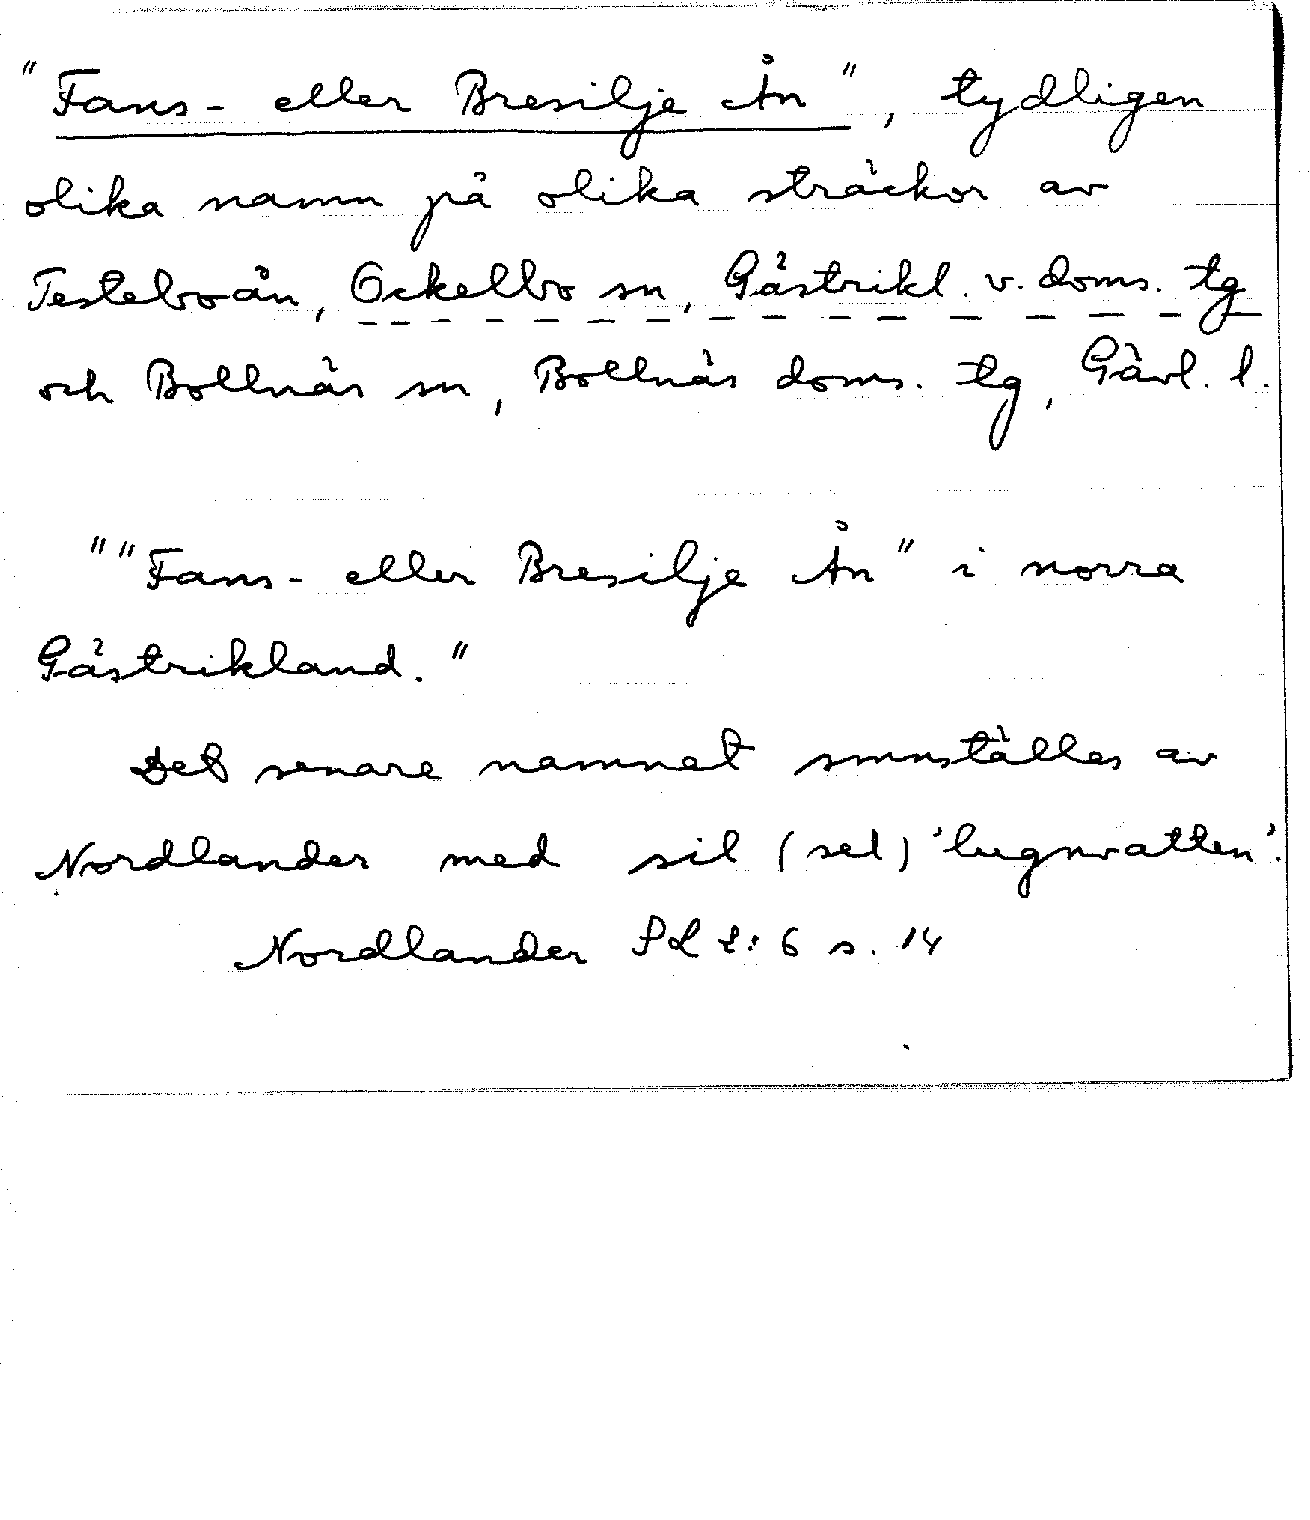 "Fans- eller Bresilje Ån", tydligen
olika namn på olika sträckor av
Testeboån, Ockelbo sn, Gästrikl. v. doms. tg
och Bollnäs sn, Bollnäs doms. tg, Gävl. l.
""Fans- eller Bresilje Ån" i norra
Gästrikland."
Det senare namnet smnställes av
Nordlander med sil (sel) 'lugnvatten'.
Nordlander 6 s. 14